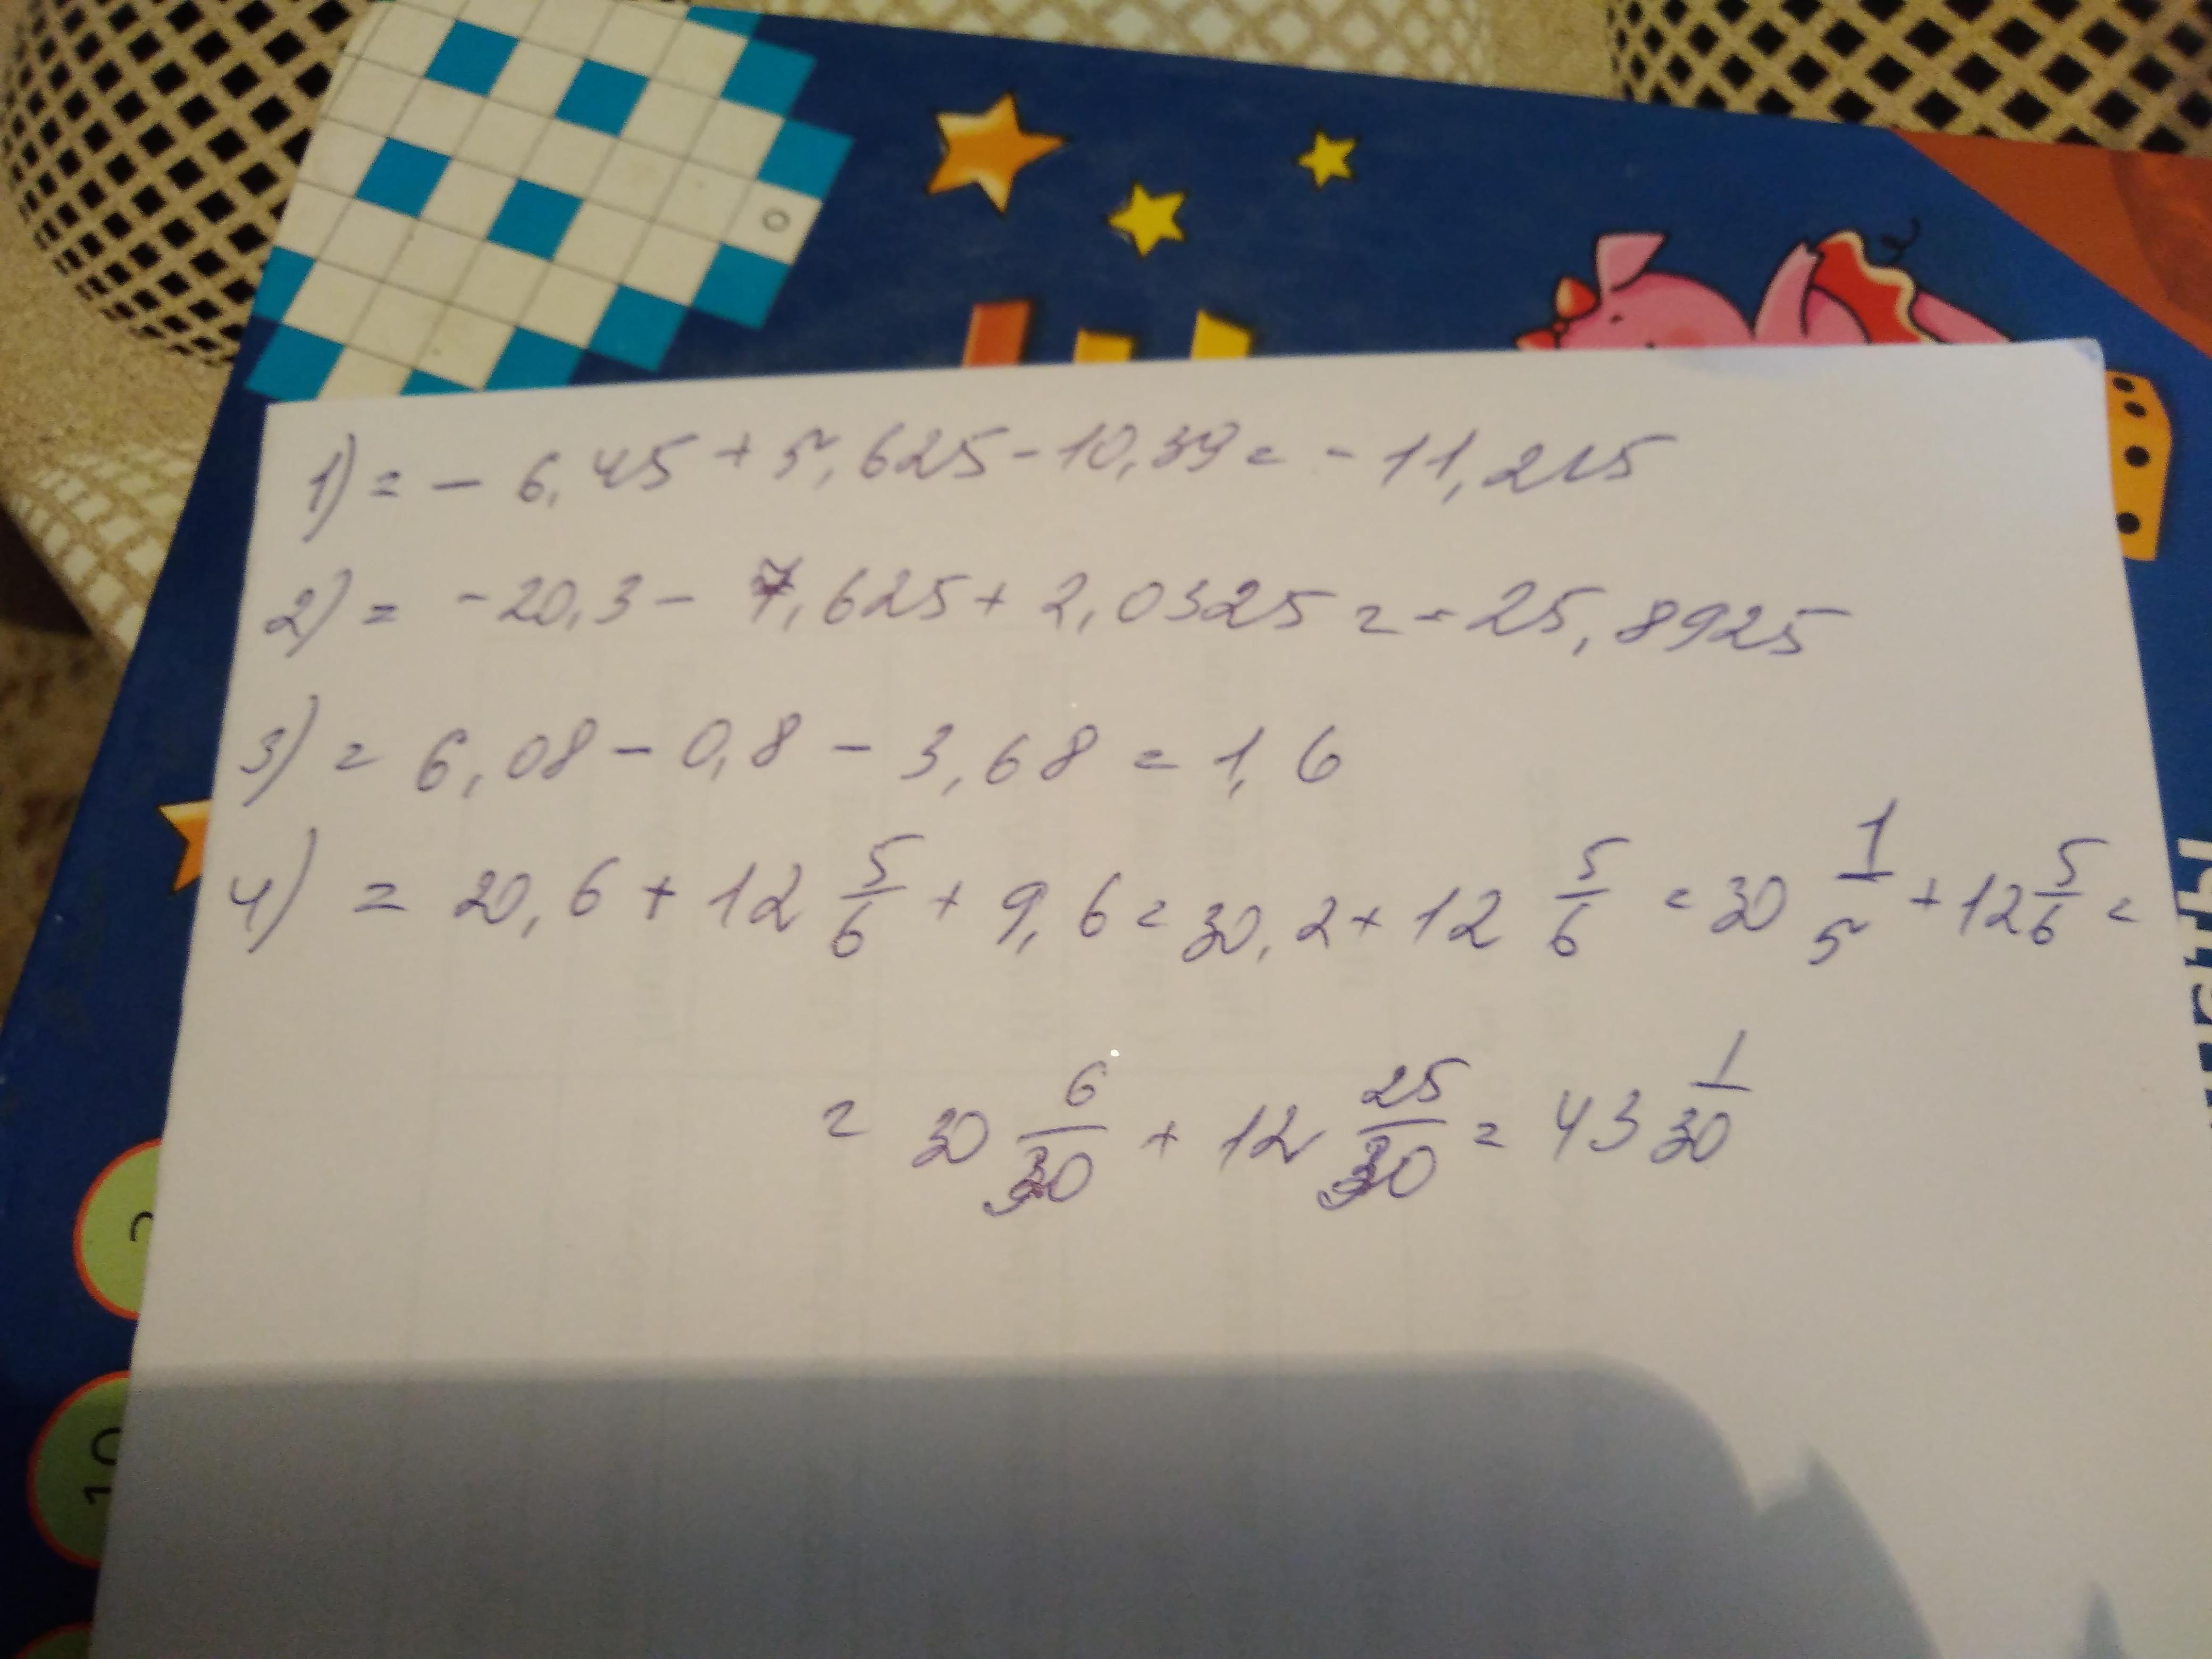 0
1) = - 6,45 + 5,625 - 10,39 = - 11,215
2) = -20,3 - 7,625 + 2,0325 = - 25,8925
3) = 6,08 - 0,8 - 3,68 = 1,6
4) = 20,6 + 12 5/6 + 9,6 = 30,2 + 12 5/6 = 30 1/5 + 12 5/6 =
= 30 6/30 + 12 25/30 = 43 1/30
10